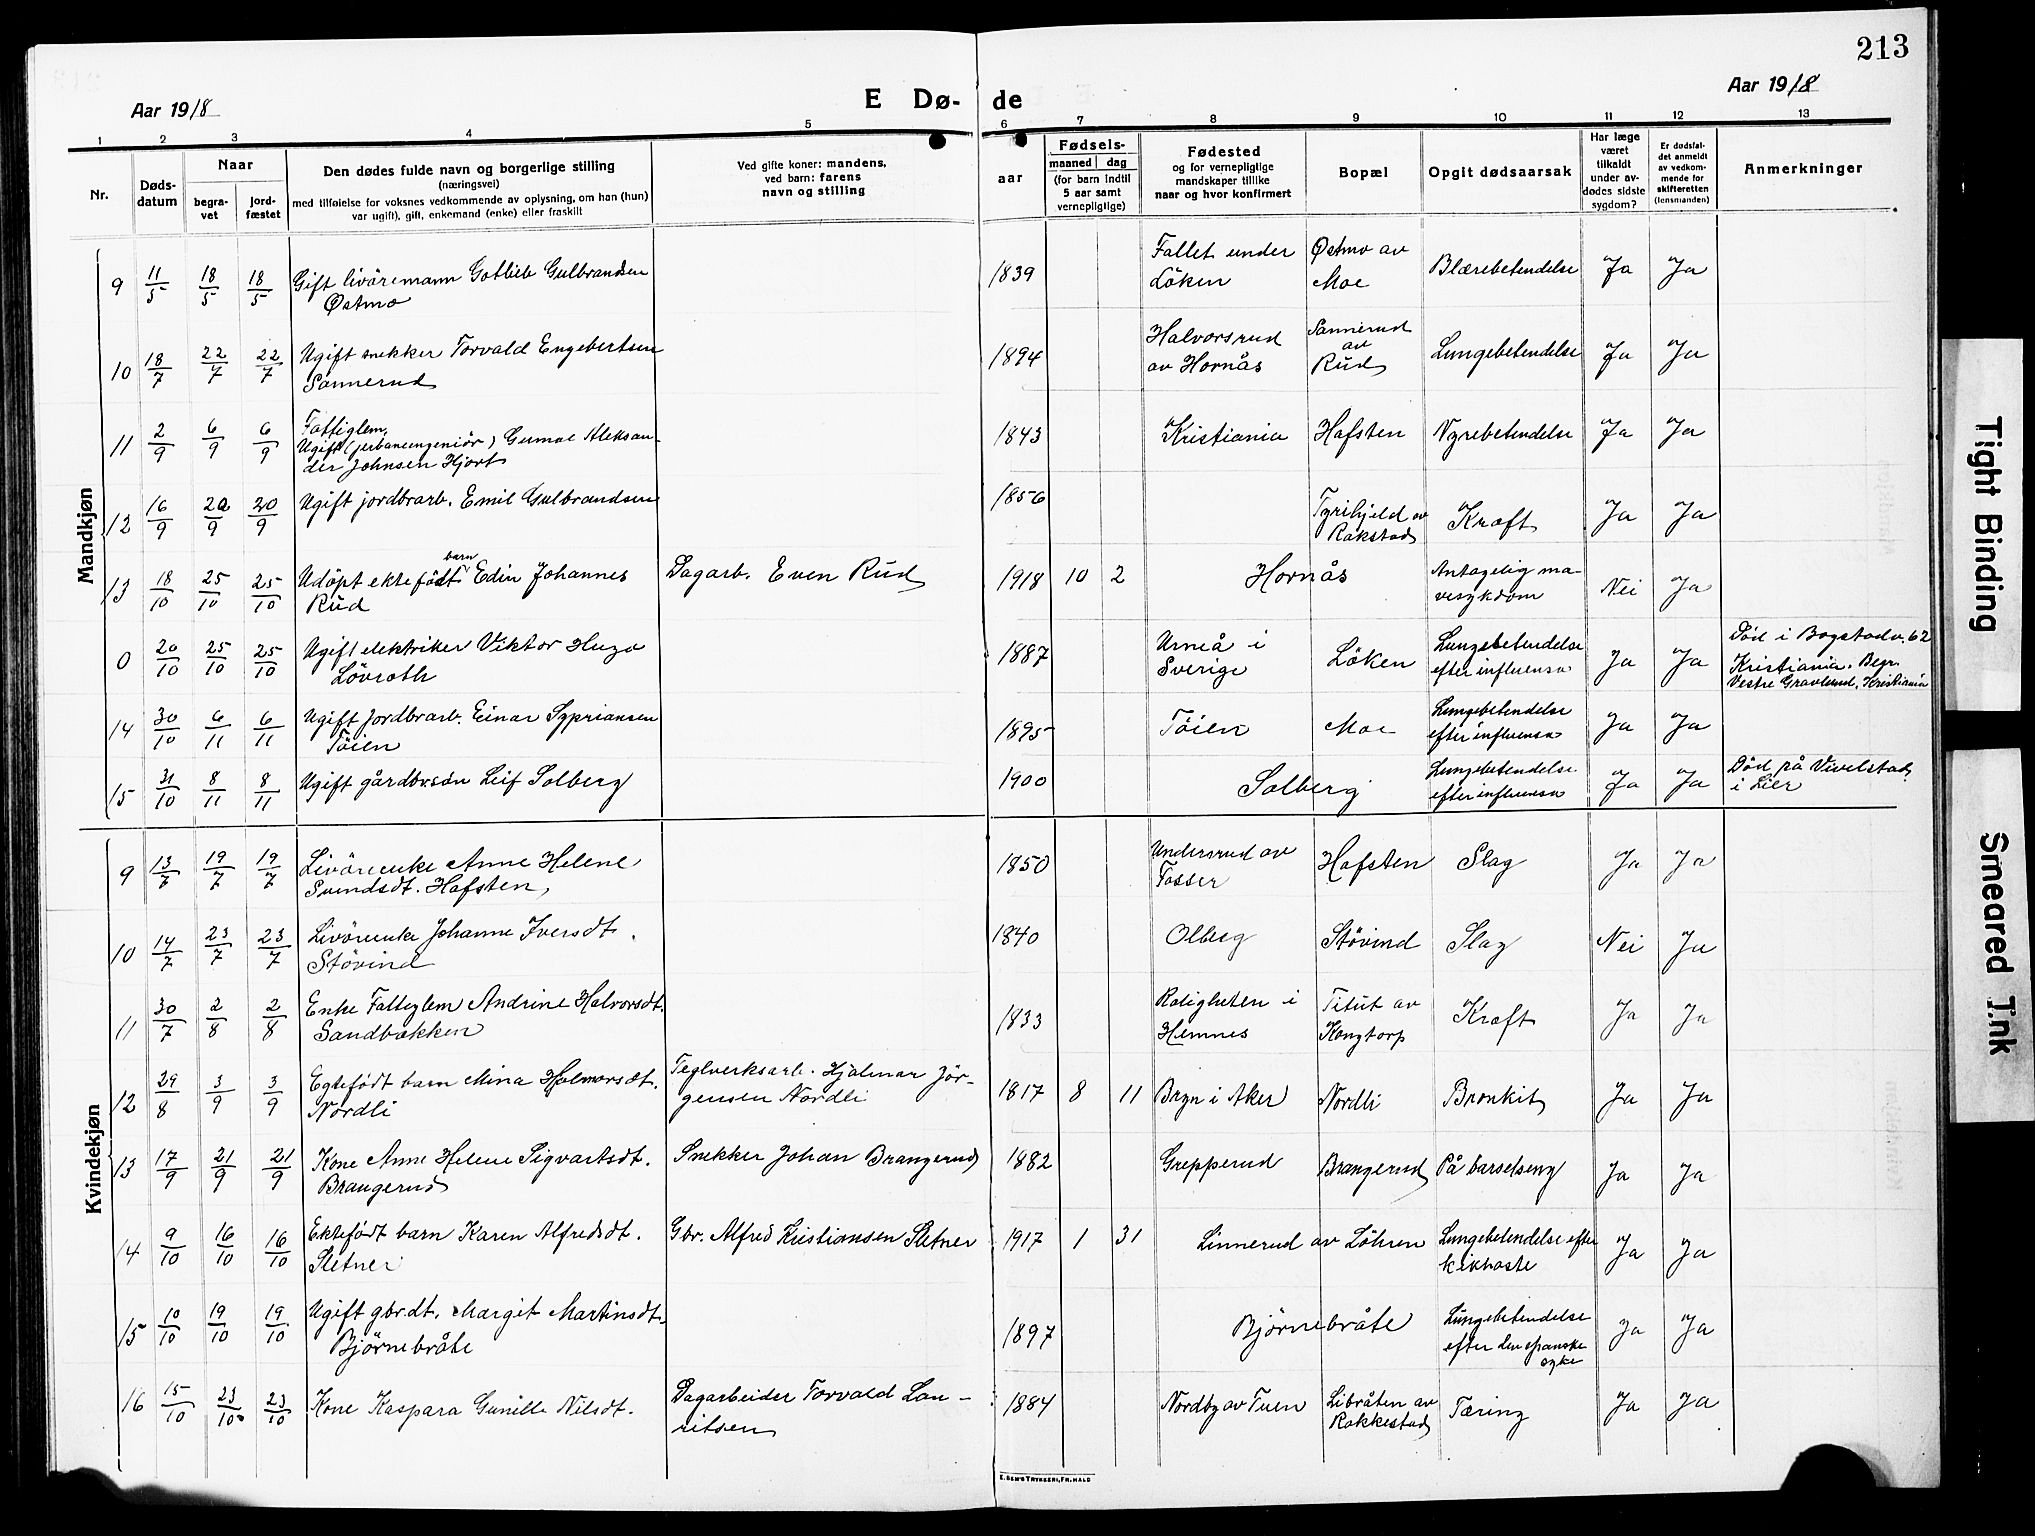 213
Aar 1918
E Dø- de
Aar 1918
1 2 3 4 5 6 7 8 9 10 11 12 13
Nr.
Døds-
datum
Naar
begra-
vet
jord-
fæstet
Den dødes fulde navn og borgerlige stilling
(næringsvei)
med tilføielse for voksnes vedkommende av oplysning, om han (hun)
var ugift, gift, enkemand (enke) eller fraskilt
Ved gifte koner: mandens,
ved barn: farens
navn og stilling
Fødsels-
aar
maaned dag
(for barn indtil
5 aar samt
vernepligtige)
Fødested
og for vernepligtige
mandskaper tillike
naar og hvor konfirmert
Bopæl
Opgit dødsaarsak
Har læge
været
tilkaldt
under av-
dødes sidste
sygdom?
Er dødsfal-
det anmeldt
av vedkom-
mende for
skifteretten
(lensmanden)
Anmerkninger
Mandkjøn
9 11/5 18/5 18/5 Gift livöremann Gotlieb Gulbrandsen
Østmo
1839 Fallet under
Löken
Østmo av
Moe
Blærebetendelse Ja Ja
10 18/7 22/7 22/7 Ugift snekker Torvald Engebertsen
Sannerud
1894 Halvorsrud
av Hornås
Sannerud
av
Rud
Lungebetendelse Ja Ja
11 2/9 6/9 6/9 Fattiglem,
Ugift (jerbaneingeniör) Gumal Aleksan-
der Johnsen Hjort
1843 Kristiania Hafsten Nyrebetendelse Ja Ja
12 16/9 20/9 20/9 Ugift jordbrarb. Emil Gulbrandsen
1856 Tyrihjeld av
Rakstad
Kræft Ja Ja
13 18/10 25/10 25/10 Udöpt ektefödt barn Edin Johannes
Rud
Dagarb. Even Rud
1918 10 2 Hornås Antagelig ma-
vesykdom
Nei Ja
0 20/10 25/10 25/10 Ugift elektriker Viktor Hugo
Lövroth
1887 Umeå i
Sverige
Löken Lungebetendelse
efter influensa
Ja Ja Död i Bogstadv. 62
Kristiania. Begr.
Vestre Gravlund, Kristiania
14 30/10 6/11 6/11 Ugift Jordbrarb. Einar Sypriansen
Töien
1895 Töien Moe Lungebetendelse
efter influensa
Ja Ja
15 31/10 8/11 8/11 Ugift gårdbr.sön Leif Solberg
1900 Solberg Lungebetendelse
efter influensa
Ja Ja Död på Vivelstad
i Lier
Kvindekjøn
9 13/7 19/7 19/7 Livörenke Anne Helene
Svendsdt. Hafsten
1850 Undersrud av
Tosser
Hafsten Slag Ja Ja
10 14/7 23/7 23/7 Livörenke Johanne Iversdt.
Stövind
1840 Olberg Stövind Slag Nei Ja
11 30/7 2/8 2/8 Enke Fattiglem Andrine Halvorsdt.
Sandbækken
1833 Roligheten i
Hemnes
Titut av
Kongtorp
Kræft Ja Ja
12 29/8 3/9 3/9 Egtefödt barn Mina Hjalmarsdt.
Nordli
Teglverksarb. Hjalmar Jör-
gensen Nordli
1817 8 11 Bryn i Aker Nordli Bronkit Ja Ja
13 17/9 21/9 21/9 Kone Anne Helene Sigvartsdt.
Brangerud
Snekker Johan Brangerud
1882 Grepperud Brangerud På barselseng Ja Ja
14 9/10 16/10 16/10 Ektefödt barn Karen Alfredsdt.
Sletner
Gbr. Alfred Kristiansen Sletner
1917 1 31 Linnerud av Löhren Lungebetendelse efter
kikhoste
Ja Ja
15 10/10 19/10 19/10 Ugift gbr.dt. Margit Martinsdt.
Bjørnebråte
1897 Bjørnebråte Lungebetendelse
efter den spanske
syke
Ja Ja
16 15/10 23/10 23/10 Kone Kaspara Gunille Nilsdt.
Dagarbeider Torvald Lau-
ritsen
1884 Nordby av Tuen Libråten av
Rakkestad
Tæring Ja Ja
E. SEM'S TRYKKERI, FR.HALD
Tight Binding
Smeared Ink